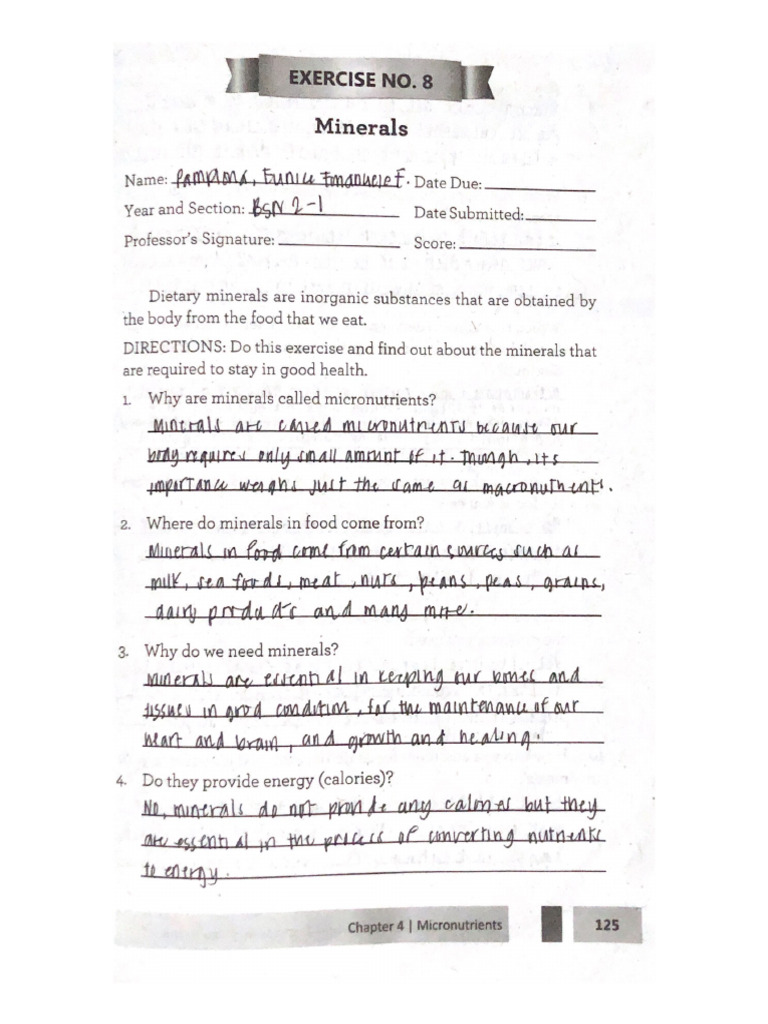 EXERCISE NO. 8
Minerals
Name: Pamplona, Eunice Emanuele F. Date Due:
Year and Section: BSN 2-1 Date Submitted:
Professor's Signature: Score:
Dietary minerals are inorganic substances that are obtained by
the body from the food that we eat.
DIRECTIONS: Do this exercise and find out about the minerals that
are required to stay in good health.
1. Why are minerals called micronutrients?
Minerals are called micronutrients because our
body requires only small amount of it. Though, its
importance weighs just the same as macronutrients.
2. Where do minerals in food come from?
Minerals in food come from certain sources such as
milk, sea foods, meat, nuts, beans, peas, grains,
dairy products and many more.
3. Why do we need minerals?
Minerals are essential in keeping our bones and
tissues in good condition, for the maintenance of our
heart and brain, and growth and healing.
4. Do they provide energy (calories)?
No, minerals do not provide any calories but they
are essential in the process of converting nutrients
to energy.
Chapter 4 | Micronutrients 125